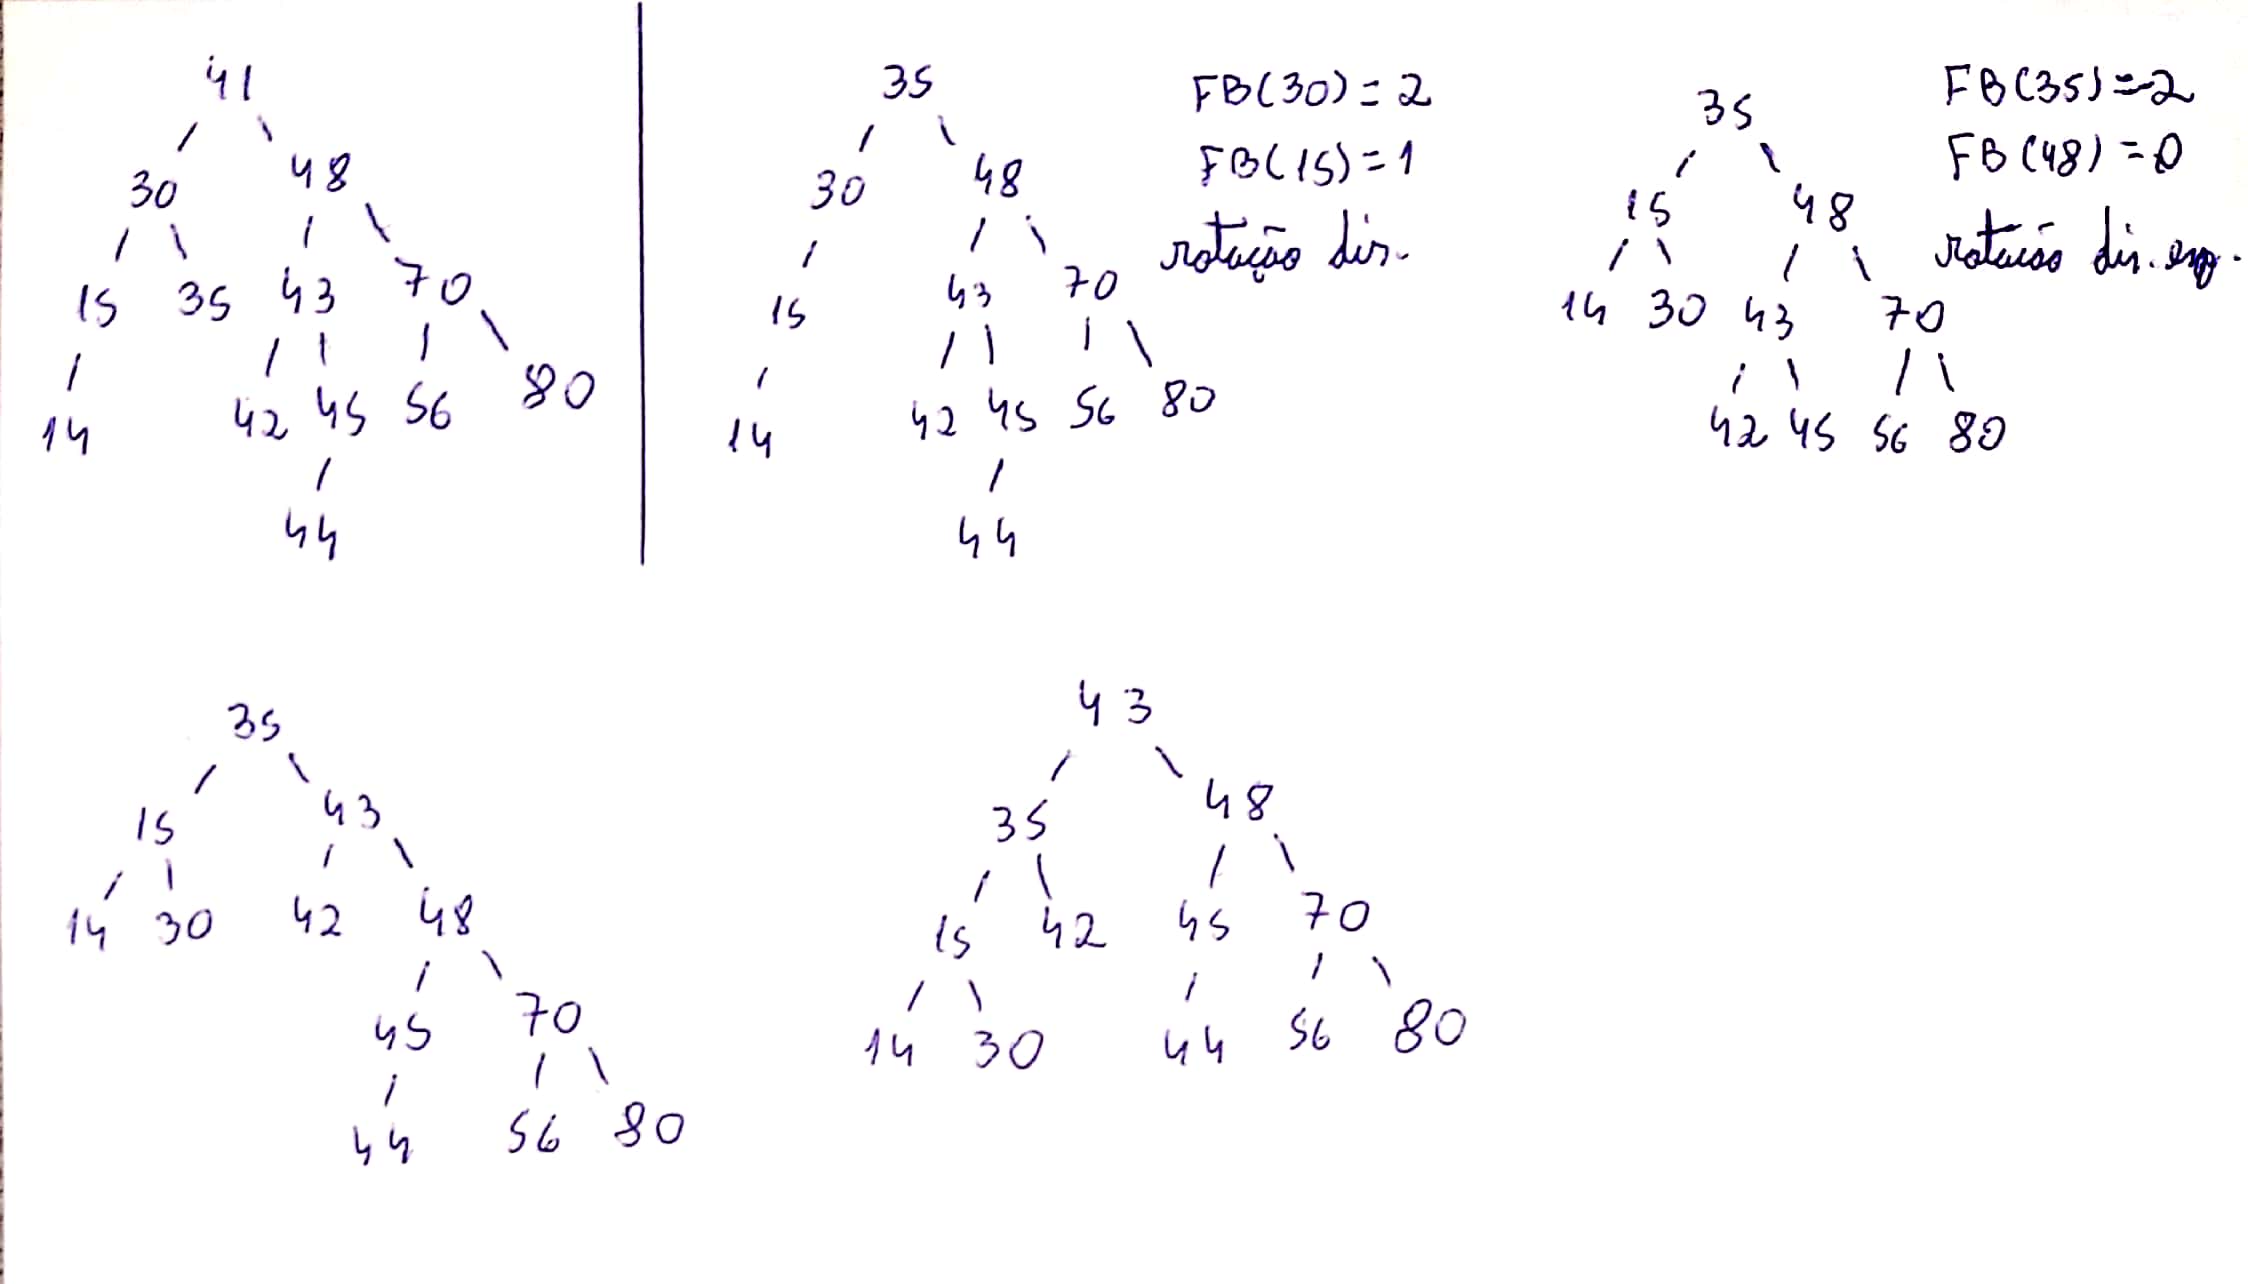 41
30 48
15 35 43 70
14 42 45 56 80
44
35
30 48
15 43 70
14 42 45 56 80
44
FB(30)=2
FB(15)=1
rotação dir.
35
15 48
14 30 43 70
42 45 56 80
FB(35)=-2
FB(48)=0
rotação dir. esq.
35
15 43
14 30 42 48
45 70
44 56 80
43
35 48
15 42 45 70
14 30 44 56 80